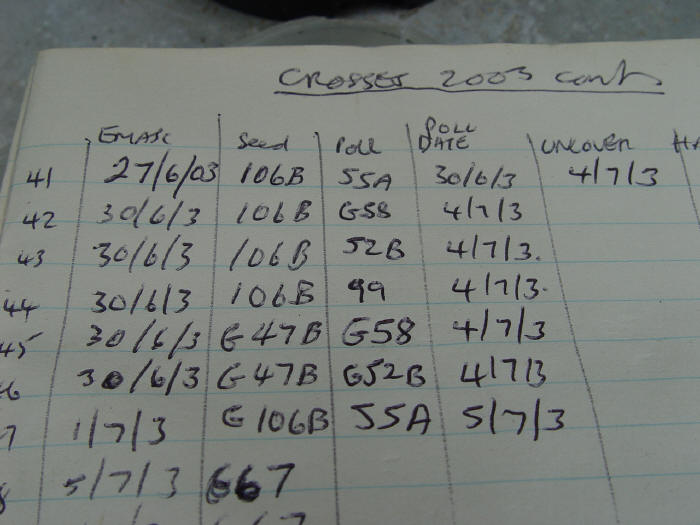 CROSSES 2003 cont.
EMASC Seed Poll POLL DATE UNCOVER HA
41 27/6/03 106B 55A 30/6/3 4/7/3
42 30/6/3 106B G58 4/7/3
43 30/6/3 106B 52B 4/7/3.
44 30/6/3 106B 99 4/7/3.
45 30/6/3 G47B G58 4/7/3
6 30/6/3 G47B G52B 4/7/3
7 1/7/3 G106B 55A 5/7/3
8 5/7/3 G67